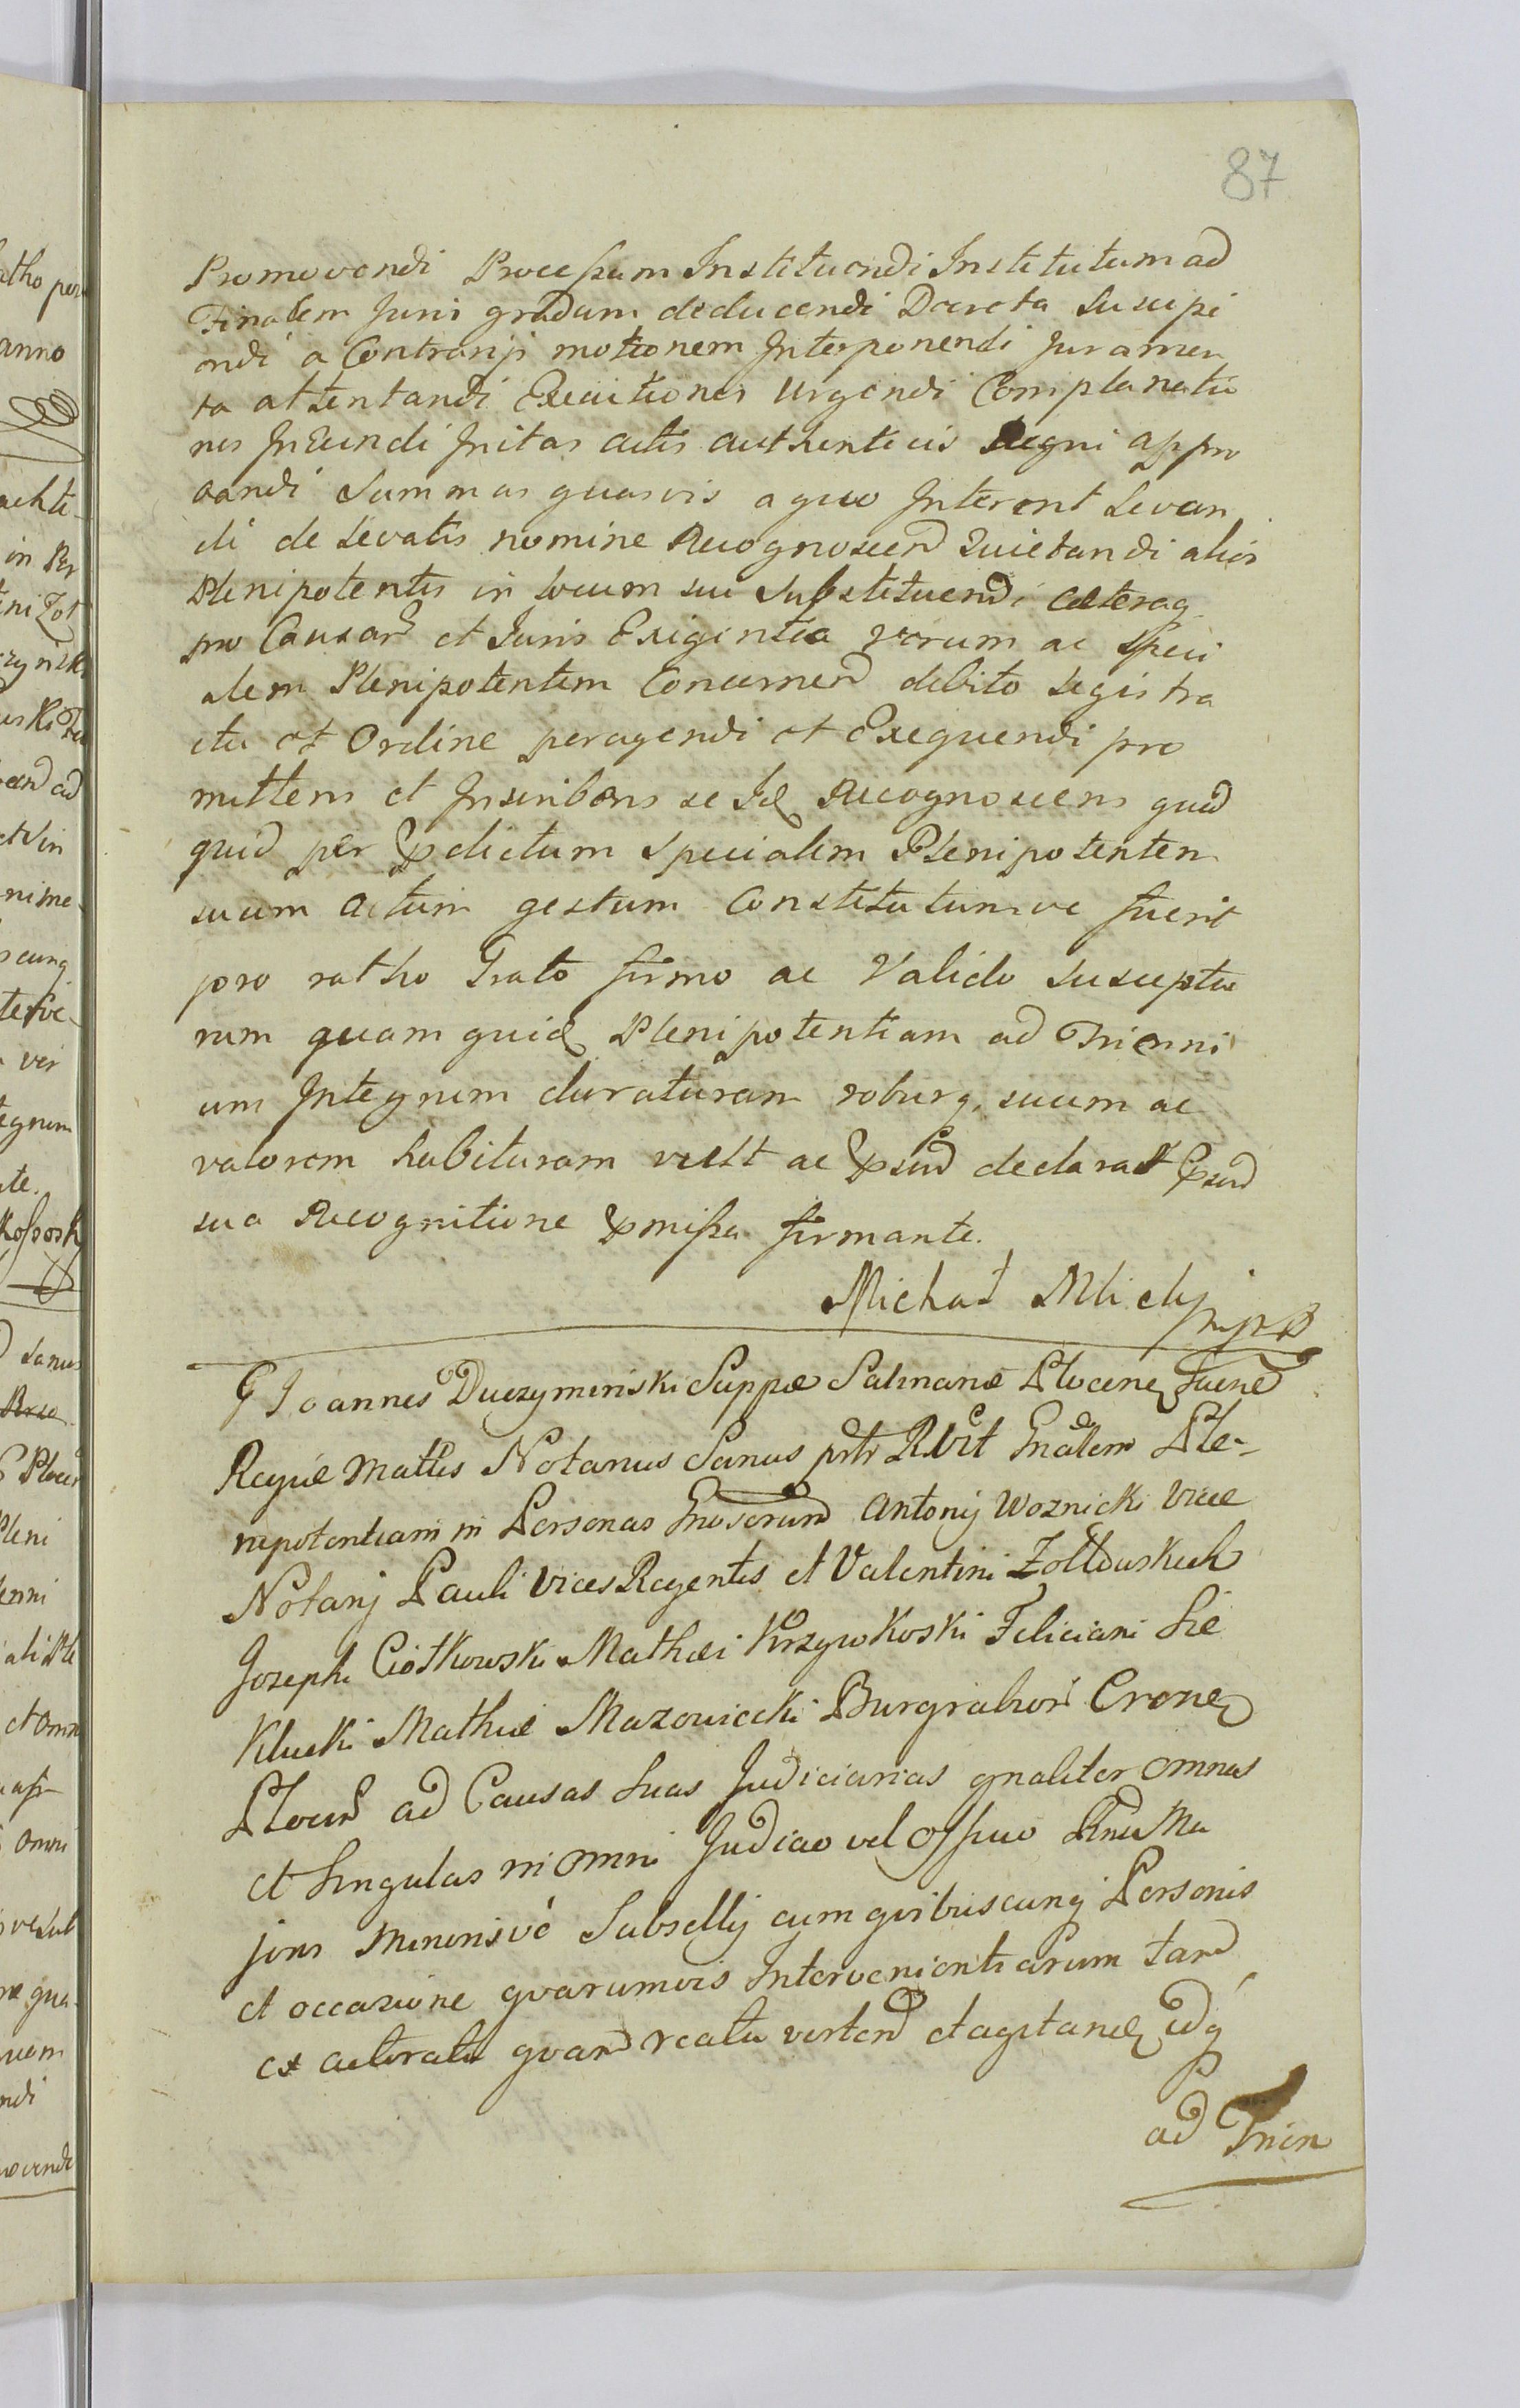 87
Promovendi Processum Instituendi Institutum ad
Finalem Juris gradum deducendi Decreta Suscipi
endi a Contrarijs motionem Interponendi Juramen
ta attentandi Executiones Urgendi Complanatio
nes Ineundi Initas actis authenticis Regni appro
bandi Summas quasvis a quo Intererit Levan
di de Levatis nomine Recognoscend Quietandi alios
Plenipotentes in locum sui Substituendi Caeteraq
pro Causar et Juris Exigentia verum ac Speci
alem Plenipotentem Concernen debito Regis tra
ctu et Ordine peragendi et Exequendi pro
mittens et Inscribens se Id Recognoscens quid
quid per pdictum Specialem Plenipotentem
suum Actum gestum Constitutumve fuerit
pro ratho Grato firmo ac Valido Susceptu
rum quam quid Plenipotentiam ad Trienni
um Integrum duraturam roburq suum ac
valorem habituram vult ac psend declarat psend
sua Recognitione pmissa firmante.
Michał Mlicky mpp
G Joannes Duczyminski Suppae Salinariae Plocen Sacrae
Regiae Mattis Notarius Sanus prtr Rbit Gnalem Ple-
nipotentiam in Personas Gnosorum Antonij Woznicki Vice
Notarij Pauli Vices Regentis et Valentini Zołtowskich
Josephi Ciołkowski Mathaei Krzywkoski Feliciani Sie
Klucki Mathiae Mazowiecki Burgrabior Cronen
Plocen ad Causas Suas Judiciarias gnaliter omnes
et Singulas in omni Judicio vel officio Regni Ma
joris Minorisve Subsellij cum quibuscunq Personis
et occasione quarumvis Intervenientiarum tam
ex actoratu quam reatu verten et agitand idq
ad Trien